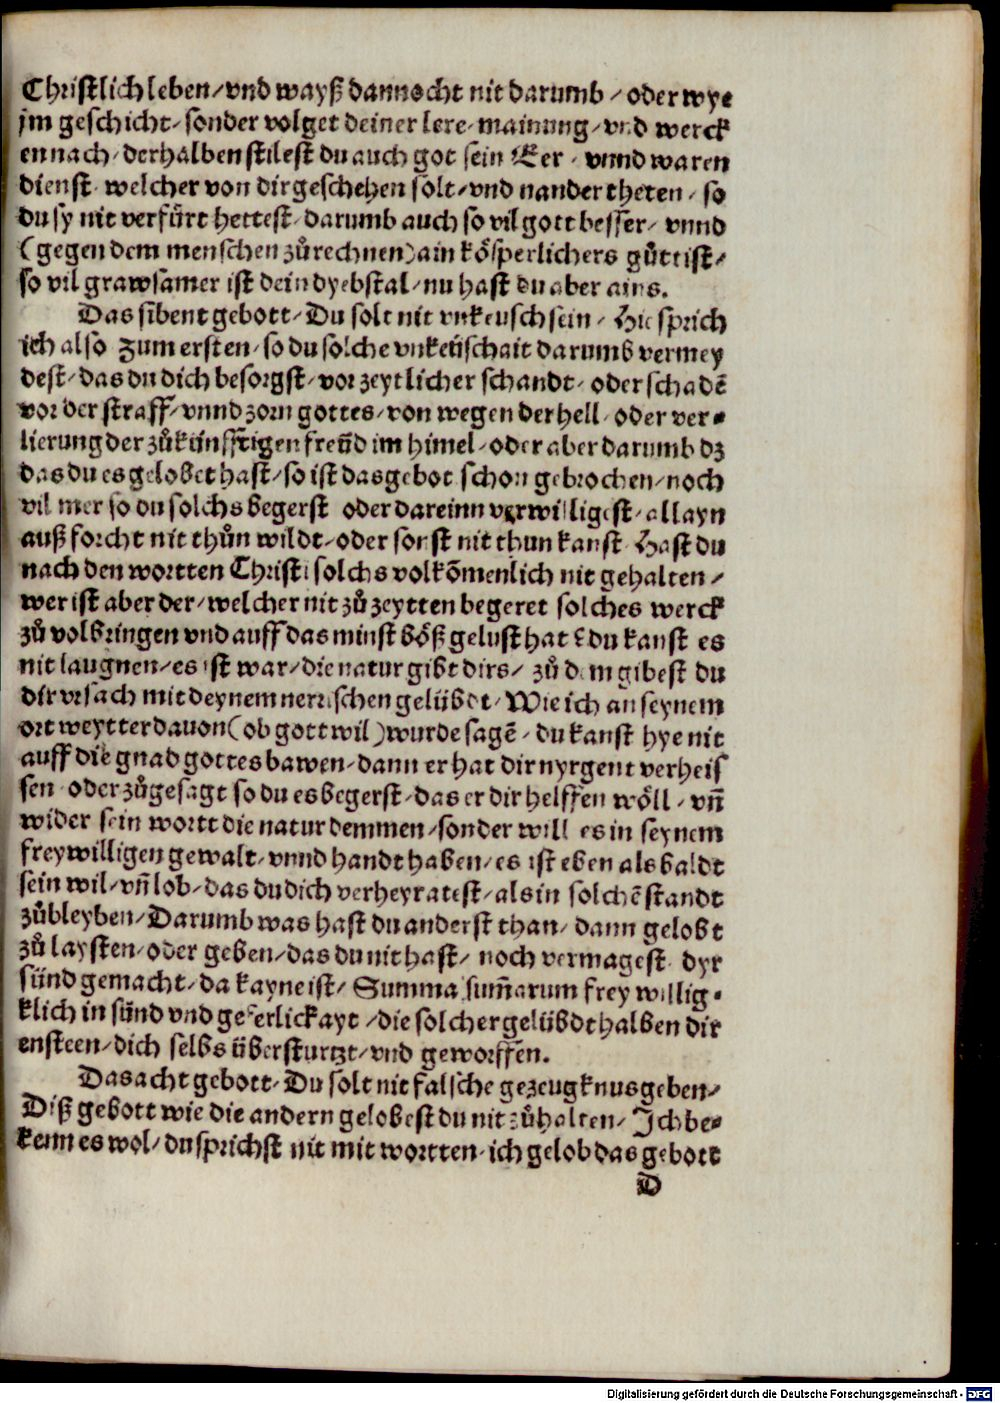 Christlich leben/ vnd wayß dannocht nit darumb / oder wye
jm geschicht/ sonder volget deiner lere/ mainung/ vnd werck
en nach/ derhalben stilest du auch got sein Eer / vnnd waren
dienst/ welcher von dir geschehen solt/ vnd nander theten / so
du sy nit verfürt hettest/ darumb auch so vil gott besser/ vnnd
(gegen dem menschen zůrechnen) ain kösperlichers gůtt ist/
so vil grawsamer ist dein dyebstal/ nu hast du aber ains.
Das sibent gebott/ Du solt nit vnkeusch sein / Hie sprich
ich also Zum ersten/ so du solche vnkeüschait darumb vermey
dest/ das du dich besorgst/ vor zeytlicher schandt/ oder schadē
vor der straff/ vnnd zorn gottes/ von wegen der hell/ oder ver-
lierung der zůkünfftigen freüd im himel/ oder aber darumb dz
das du es gelobet hast/ so ist das gebot schon gebrochen/ noch
vil mer so du solchs begerst oder darein verwilligest/ allayn
auß forcht nit thůn wildt/ oder sonst nit thun kanst/ Hast du
nach den wortten Christi solchs volkōmenlich nit gehalten /
wer ist aber der/ welcher nit zů zeytten begeret solches werck
zů volbringen vnd auff das minst böß gelust hat? du kanst es
nit laugnen/ es ist war/ die natur gibt dirs/ zů dem gibest du
dir vrsach mit deynem nerrischen gelübdt/ Wie ich an seynem
ort weytter dauon (ob gott wil) wurde sagē/ du kanst hye nit
auff die gnad gottes bawen/ dann er hat dir nyrgent verheis
sen/ oder zůgesagt so du es begerst/ das er dir helffen wöll / vn̄
wider sein wortt die natur demmen/ sonder will es in seynem
freywilligen gewalt/ vnnd handt haben/ es ist eben als baldt
sein wil/ vn̄ lob/ das du dich verheyratest/ als in solchē standt
zůbleyben/ Darumb was hast du anderst than/ dann gelobt
zů laysten/ oder geben/ das du nit hast/ noch vermagest/ dyr
sünd gemacht/ da kayne ist/ Summa sum̄arum frey willig-
klich in sünd vnd geferlickayt / die solcher gelübdt halben dir
ensteen/ dich selbs übersturtzt/ vnd geworffen.
Das acht gebott/ Du solt nit falsche gezeugknus geben/
Diß gebott wie die andern gelobest du nit zůhalten/ Ich be-
kenn es wol/ du sprichst nit mit wortten/ ich gelob das gebott
D
Digitalisierung gefördert durch die Deutsche Forschungsgemeinschaft - DFG